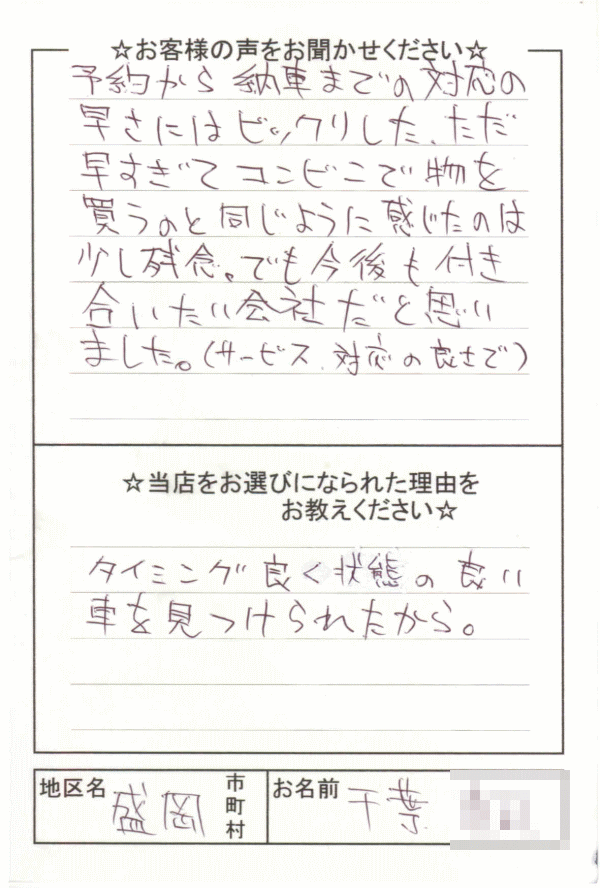 ☆お客様の声をお聞かせください☆
予約から納車までの対応の
早さにはビックリした、ただ
早すぎてコンビニで物を
買うのと同じように感じたのは
少し残念。でも今後も付き
合いたい会社だと思い
ました。(サービス、対応の良さで)
☆当店をお選びになられた理由を
お教えください☆
タイミング良く状態の良い
車を見つけられたから。
地区名 盛岡 市町村 お名前 千葉